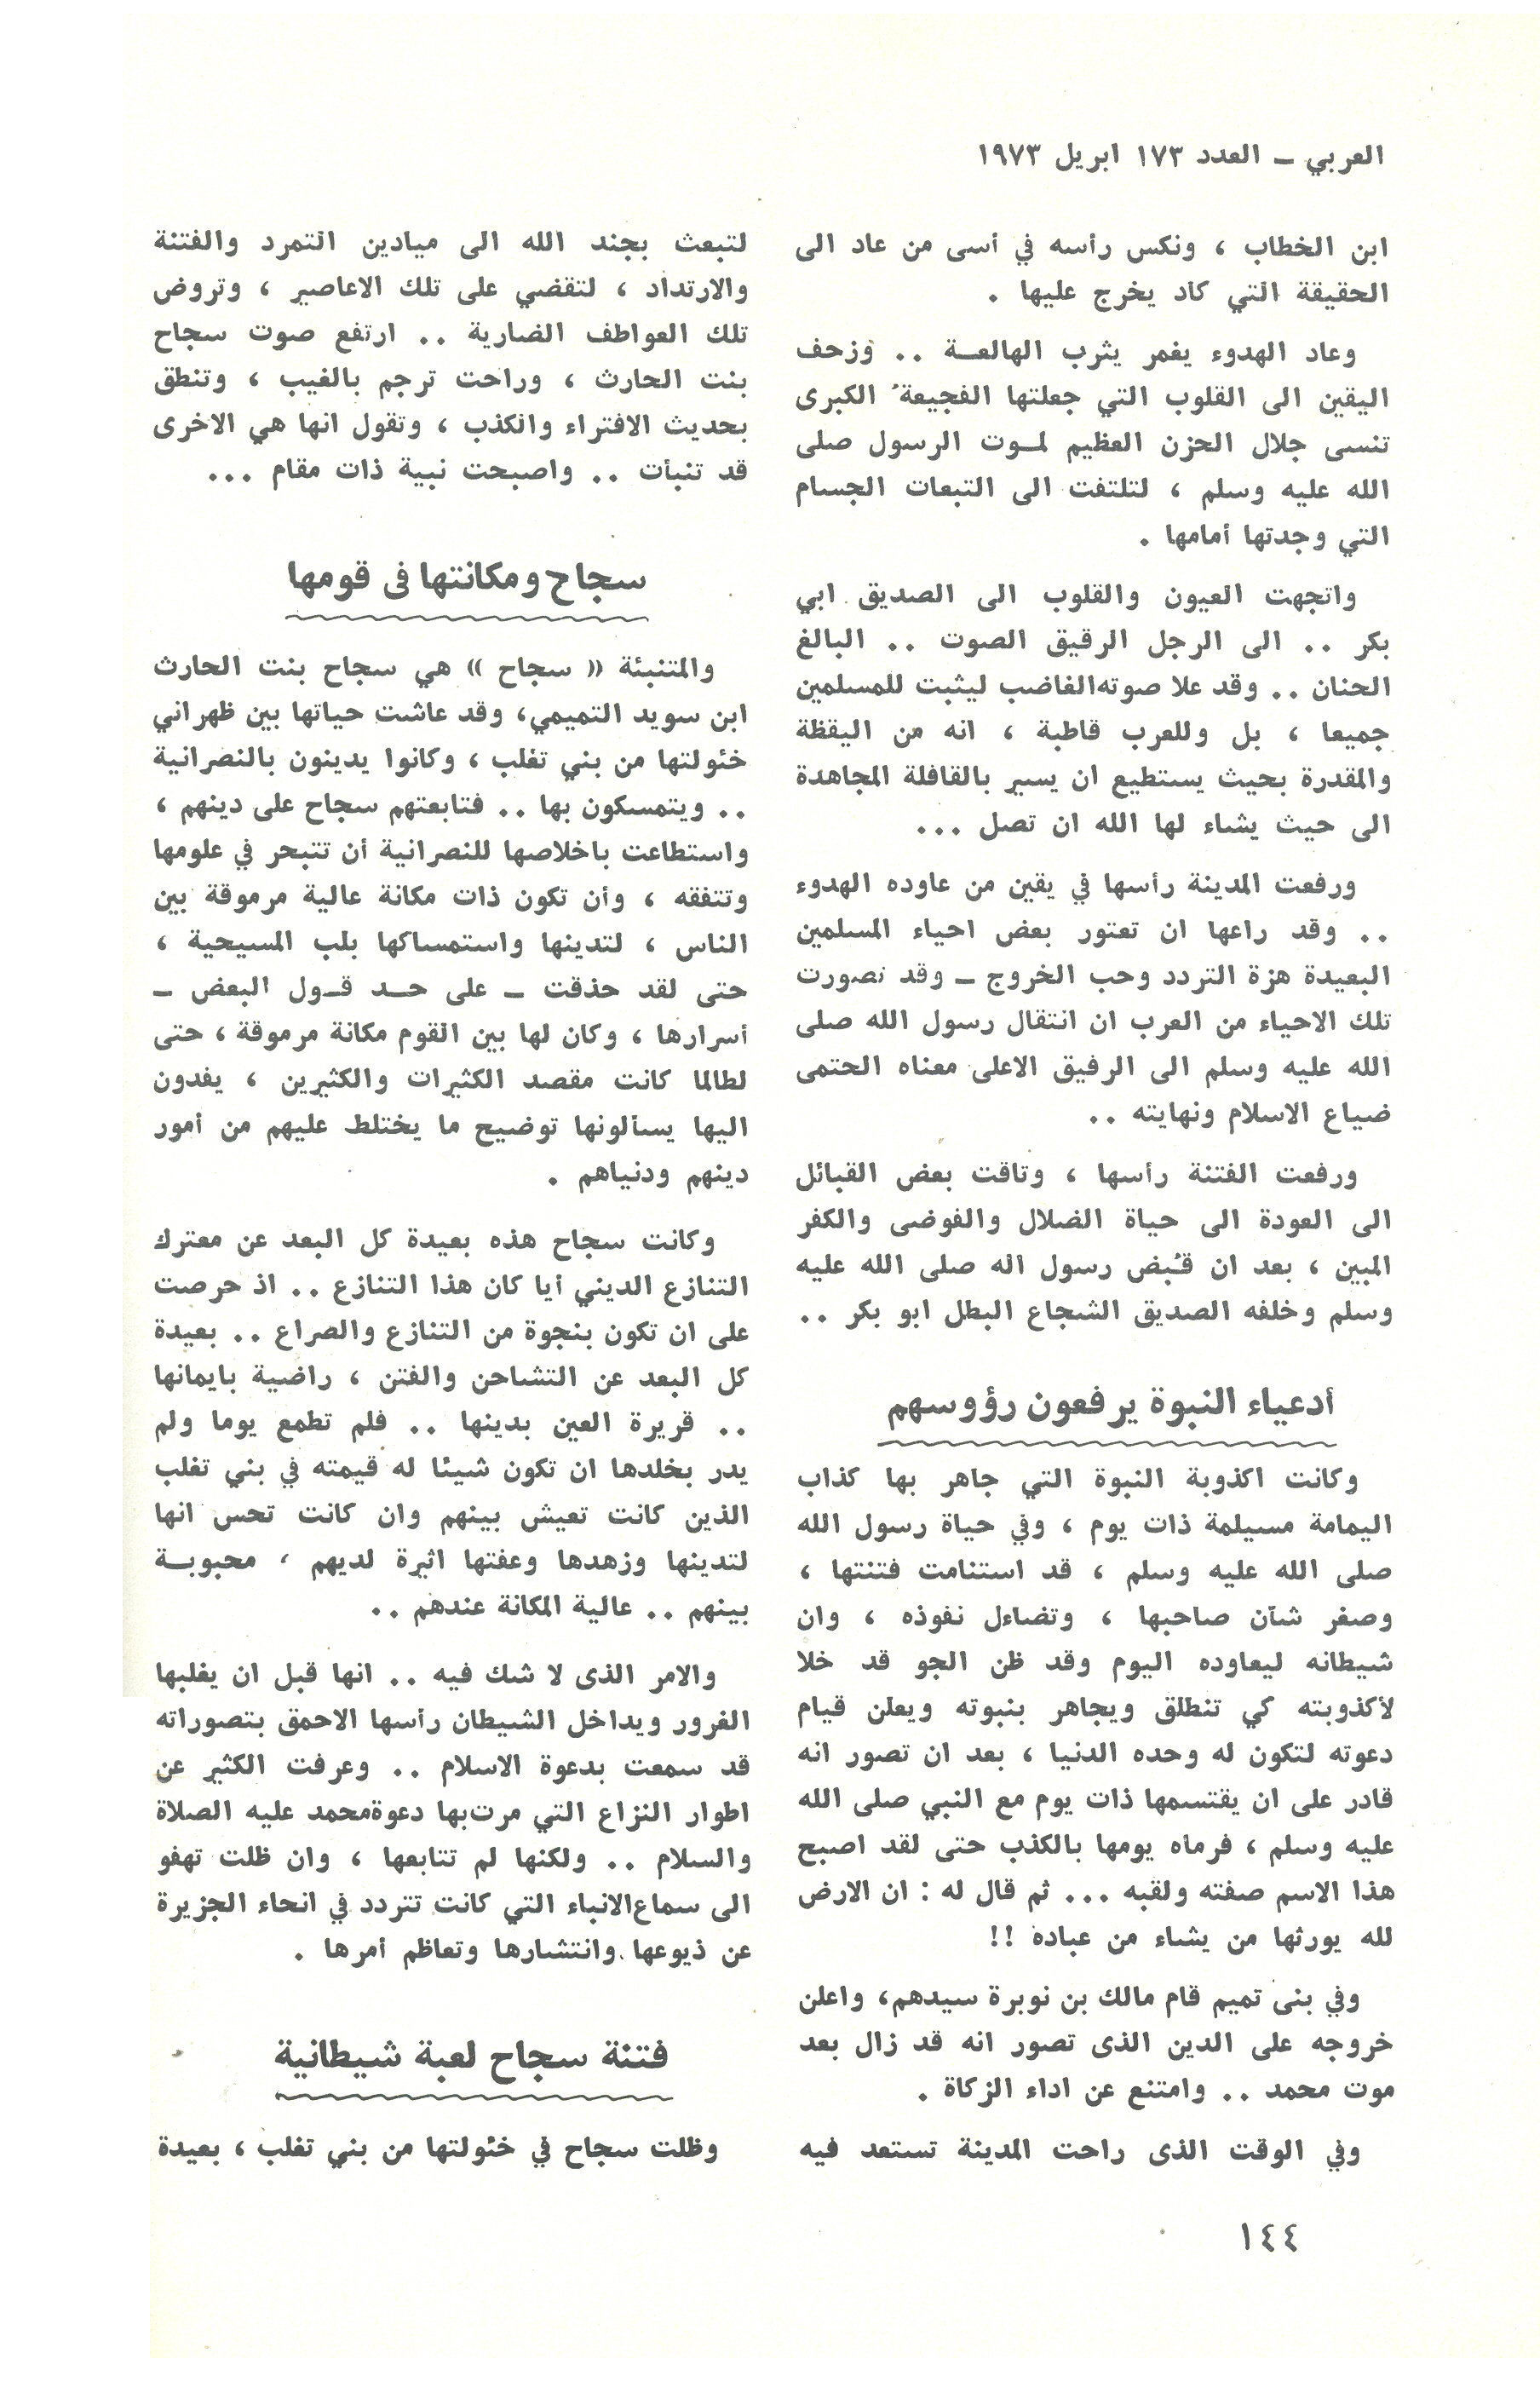 العربي – العدد ١٧٣ ابريل ١٩٧٣
ابن الخطاب ، ونكس رأسه في أسى من عاد الى
الحقيقة التي كاد يخرج عليها .
وعاد الهدوء يغمر يثرب الهالعـة .. وزحف
اليقين الى القلوب التي جعلتها الفجيعةُ الكبرى
تنسى جلال الحزن العظيم لمـوت الرسول صلى
الله عليه وسلم ، لتلتفت الى التبعات الجسام
التي وجدتها أمامها .
واتجهت العيون والقلوب الى الصديق ابي
بكر .. الى الرجل الرقيق الصوت .. البالغ
الحنان .. وقد علا صوته الغاضب ليثبت للمسلمين
جميعا ، بل وللعرب قاطبة ، انه من اليقظة
والمقدرة بحيث يستطيع ان يسير بالقافلة المجاهدة
الى حيث يشاء لها الله ان تصل ...
ورفعت المدينة رأسها في يقين من عاوده الهدوء
.. وقد راعها ان تعتور بعض احياء المسلمين
البعيدة هزة التردد وحب الخروج – وقد تصورت
تلك الاحياء من العرب ان انتقال رسول الله صلى
الله عليه وسلم الى الرفيق الاعلى معناه الحتمى
ضياع الاسلام ونهايته ..
ورفعت الفتنة رأسها ، وتاقت بعض القبائل
الى العودة الى حياة الضلال والفوضى والكفر
المبين ، بعد ان قُبض رسول اله صلى الله عليه
وسلم وخلفه الصديق الشجاع البطل ابو بكر ..
أدعياء النبوة يرفعون رؤوسهم
وكانت اكذوبة النبوة التي جاهر بها كذاب
اليمامة مسيلمة ذات يوم ، وفي حياة رسول الله
صلى الله عليه وسلم ، قد استنامت فتنتها ،
وصغر شأن صاحبها ، وتضاءل نفوذه ، وان
شيطانه ليعاوده اليوم وقد ظن الجو قد خلا
لأكذوبته كي تنطلق ويجاهر بنبوته ويعلن قيام
دعوته لتكون له وحده الدنيا ، بعد ان تصور انه
قادر على ان يقتسمها ذات يوم مع النبي صلى الله
عليه وسلم ، فرماه يومها بالكذب حتى لقد اصبح
هذا الاسم صفته ولقبه ... ثم قال له : ان الارض
لله يورثها من يشاء من عباده !!
وفي بنى تميم قام مالك بن نويرة سيدهم، واعلن
خروجه على الدين الذى تصور انه قد زال بعد
موت محمد .. وامتنع عن اداء الزكاة .
وفي الوقت الذى راحت المدينة تستعد فيه
لتبعث بجند الله الى ميادين التمرد والفتنة
والارتداد ، لتقضي على تلك الاعاصير ، وتروض
تلك العواطف الضارية .. ارتفع صوت سجاح
بنت الحارث ، وراحت ترجم بالغيب ، وتنطق
بحديث الافتراء والكذب ، وتقول انها هي الاخرى
قد تنبأت .. واصبحت نبية ذات مقام ...
سجاح ومكانتها فى قومها
والمتنبئة « سجاح » هي سجاح بنت الحارث
ابن سويد التميمي، وقد عاشت حياتها بين ظهراني
خئولتها من بني تغلب ، وكانوا يدينون بالنصرانية
.. ويتمسكون بها .. فتابعتهم سجاح على دينهم ،
واستطاعت باخلاصها للنصرانية أن تتبحر في علومها
وتتفقه ، وأن تكون ذات مكانة عالية مرموقة بين
الناس ، لتدينها واستمساكها بلب المسيحية ،
حتى لقد حذقت – على حـد قـول البعض –
أسرارها ، وكان لها بين القوم مكانة مرموقة ، حتى
لطالما كانت مقصد الكثيرات والكثيرين ، يفدون
اليها يسألونها توضيح ما يختلط عليهم من أمور
دينهم ودنياهم .
وكانت سجاح هذه بعيدة كل البعد عن معترك
التنازع الديني أيا كان هذا التنازع .. اذ حرصت
على ان تكون بنجوة من التنازع والصراع .. بعيدة
كل البعد عن التشاحن والفتن ، راضية بايمانها
.. قريرة العين بدينها .. فلم تطمع يوما ولم
يدر بخلدها ان تكون شيئا له قيمته في بني تغلب
الذين كانت تعيش بينهم وان كانت تحس انها
لتدينها وزهدها وعفتها اثيرة لديهم ، محبوبـة
بينهم .. عالية المكانة عندهم ..
والامر الذى لا شك فيه .. انها قبل ان يغلبها
الغرور ويداخل الشيطان رأسها الاحمق بتصوراته
قد سمعت بدعوة الاسلام .. وعرفت الكثير عن
اطوار النزاع التي مرت بها دعوة محمد عليه الصلاة
والسلام .. ولكنها لم تتابعها ، وان ظلت تهفو
الى سماع الانباء التي كانت تتردد في انحاء الجزيرة
عن ذيوعها وانتشارها وتعاظم أمرها .
فتنة سجاح لعبة شيطانية
وظلت سجاح في خئولتها من بني تغلب ، بعيدة
١٤٤